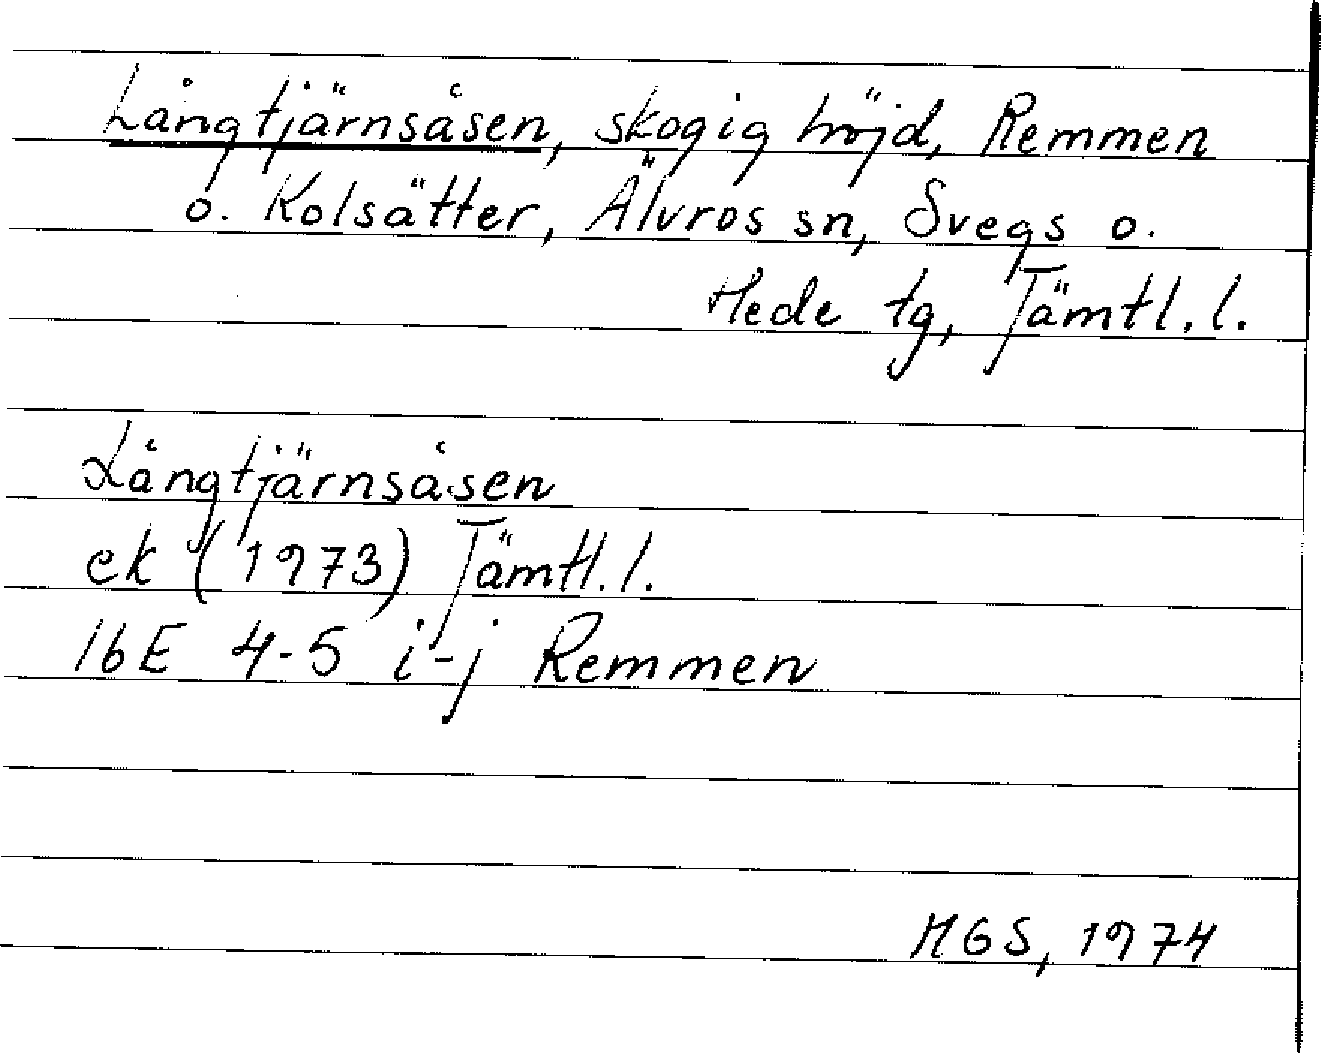 Långtjärnsåsen, skogig höjd, Remmen
o. Kolsätter, Älvros sn, Svegs o.
Hede tg, Jämtl. l.
Långtjärnsåsen
ek (1973) Jämtl. l.
16E 4-5 i-j Remmen
MGS, 1974